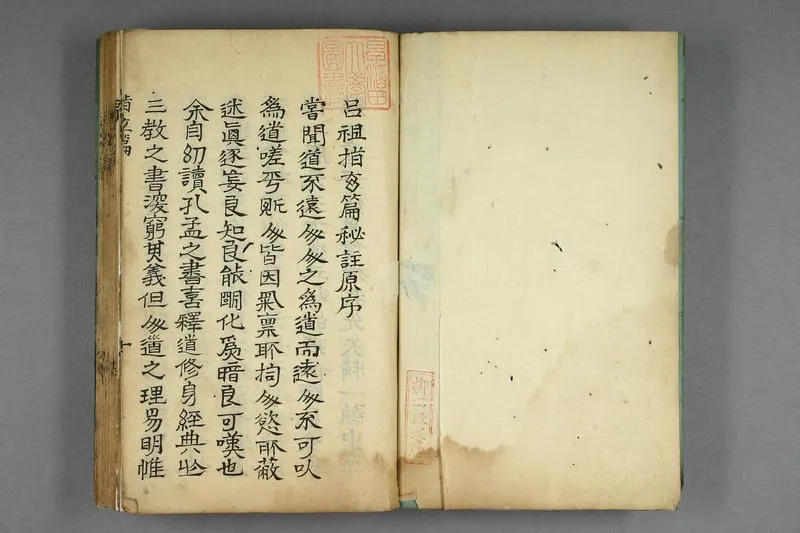 呂祖指玄篇秘註原序
嘗聞道不遠人人之爲道而遠人不可以
爲道嗟乎人皆因氣稟所拘人慾所蔽
迷眞逐妄良知良能明化爲暗良可嘆也
余自幼讀孔孟之書喜釋道修身經典此
三教之書深窮其義但人道之理易明惟
早稲田
大學
圖書